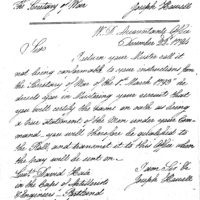 The Secretary of War Joseph Howell
W. D. Accountants Office
December 22d. 1794
Sir
I return your Muster roll it
not being conformable to your instructions from
the Secretary of War of the 1st March 1793 he
directs you in Mustering your recruits that
you will certify the same on oath as being
a true statement of the Men under your Com
mand. you will therefore be pleased to
the Roll, and transmit it to this Office when
the pay will be sent on.
I am Sir &c
Joseph Howell
Lieut. David
in the Corps of Artillerists
& Engineers